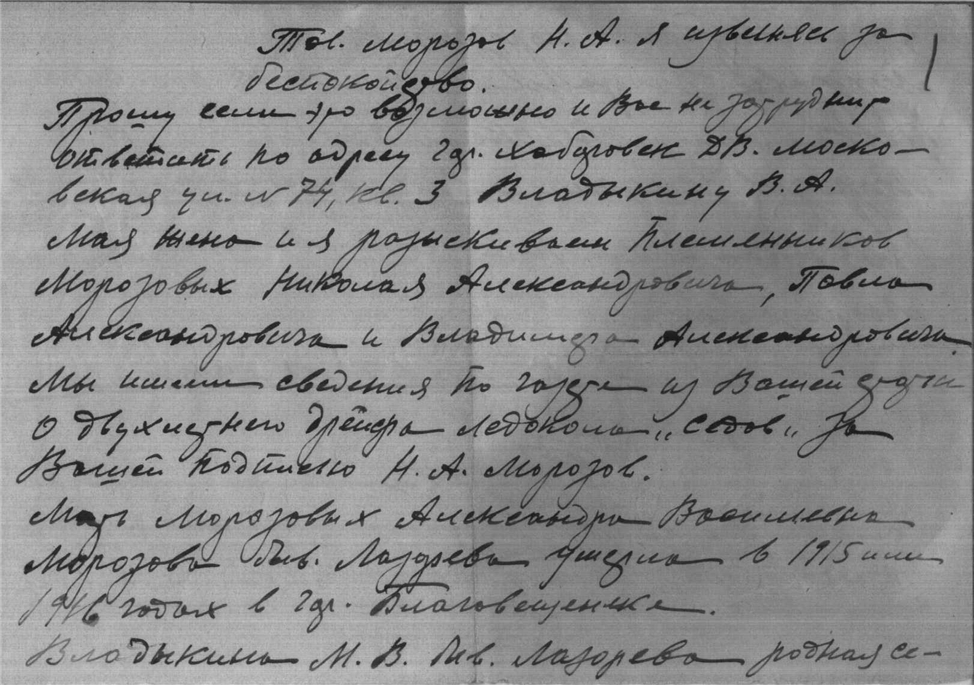 Тов. Морозов Н. А. я извеняясь за
беспокойство.
Прошу если это возможно и Вас не затруднит
ответить по адресу гор. Хабаровск ДВ. Моско-
вская ул. N 74, кв. 3 Владыкину В. А.
Мая жена и я разыскиваем Племянников
Морозовых Николая Александровича, Павла
Александровича и Владимира Александровича.
Мы имеем сведения по газете из Вашей статьи
О двухлетнего дрейфа ледокола „Седов„ за
Вашей Подписью Н. А. Морозов.
Мать Морозовых Александра Васильевна
Морозова быв. Лазарева умерла в 1915 или
1916 годах в гор. Благовещенске.
Владыкина М. В. быв. Лазарева родная се-